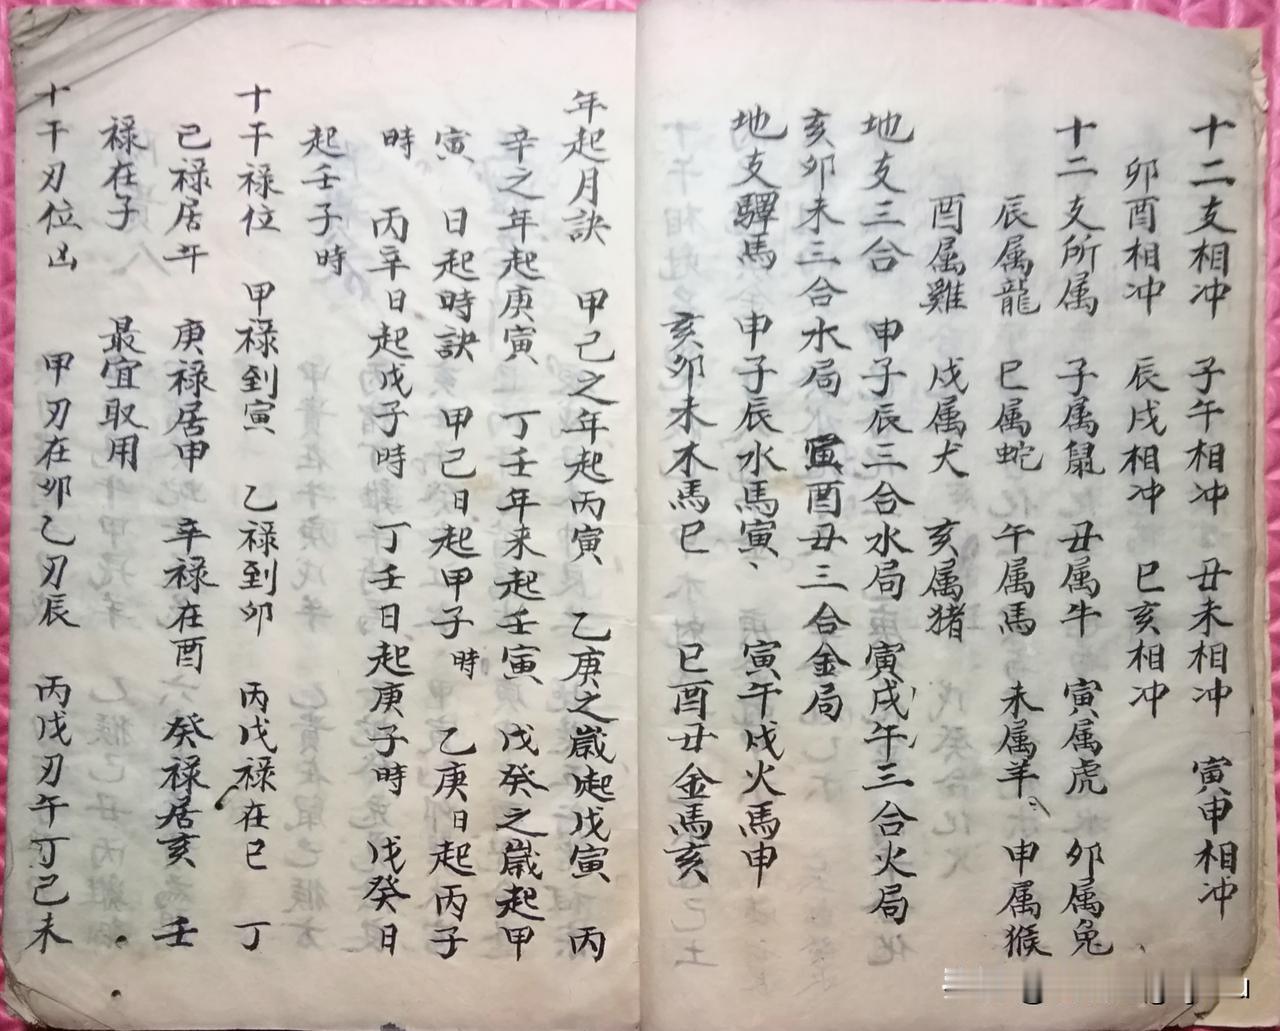 十二支相冲 子午相冲 丑未相冲 寅申相冲
卯酉相冲 辰戌相冲 巳亥相冲
十二支所属 子属鼠 丑属牛 寅属虎 卯属兔
辰属龍 巳属蛇 午属馬 未属羊 申属猴
酉属雞 戌属犬 亥属猪
地支三合 申子辰三合水局 寅戌午三合火局
亥卯未三合水局 酉丑三合金局
地支驛馬 申子辰水馬寅、 寅午戌火馬申
亥卯未木馬巳 巳酉丑金馬亥
年起月訣 甲己之年起丙寅 乙庚之歲起戊寅 丙
辛之年起庚寅 丁壬年来起壬寅 戊癸之歲起甲
寅 日起時訣 甲己日起甲子時 乙庚日起丙子
時 丙辛日起戊子時 丁壬日起庚子時 戊癸日
起壬子時
十干禄位 甲禄到寅 乙禄到卯 丙戊禄在巳 丁
己禄居午 庚禄居申 辛禄在酉 癸禄居亥 壬
禄在子 最宜取用
十干刃位凶 甲刃在卯乙刃辰 丙戊刃午丁己未